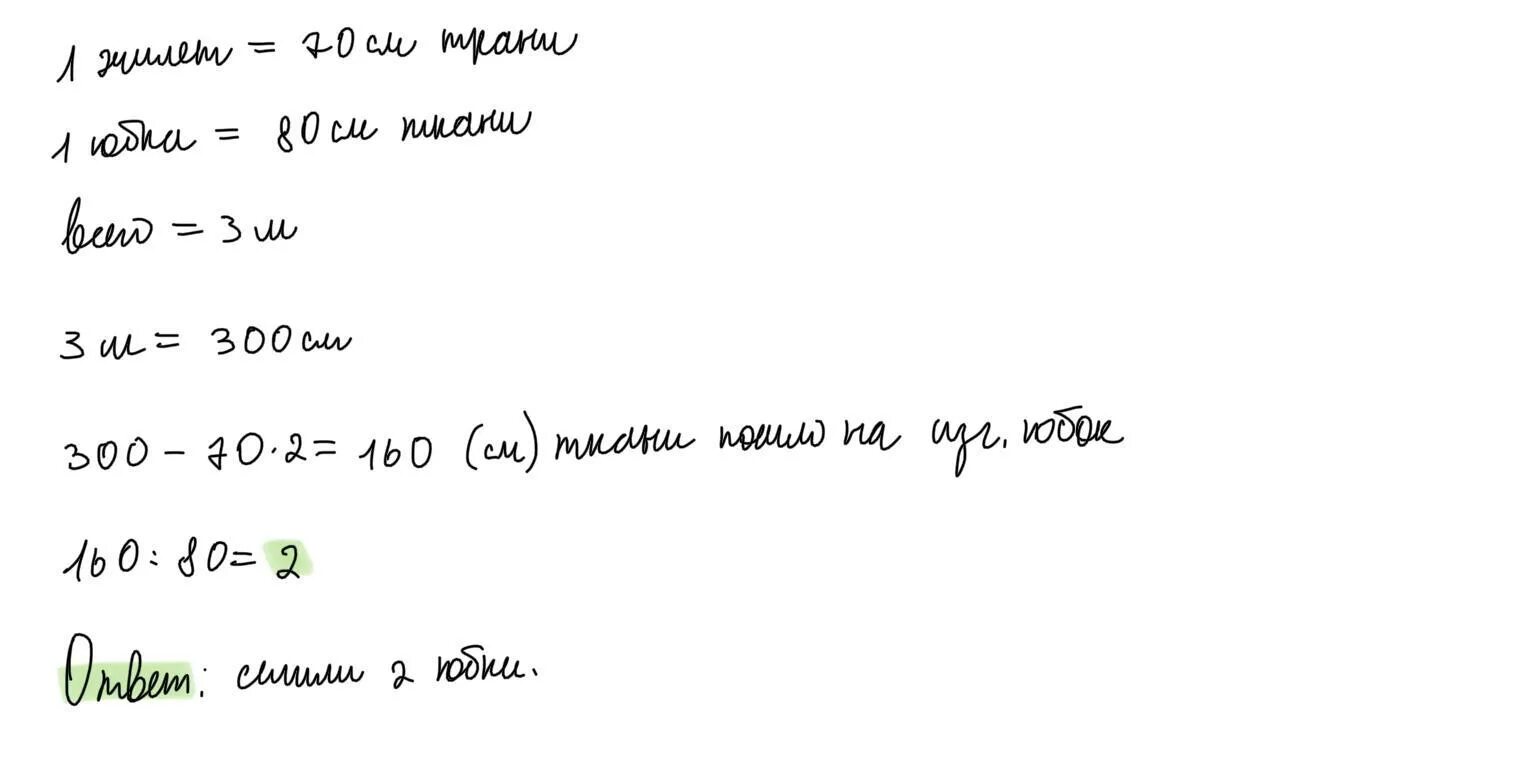 1 жилет = 70 см ткани
1 юбка = 80 см ткани
всего = 3 м
3 м = 300 см
300 - 70 · 2 = 160 (см) ткани пошло на изг. юбок
160 : 80 = 2
Ответ: сшили 2 юбки.